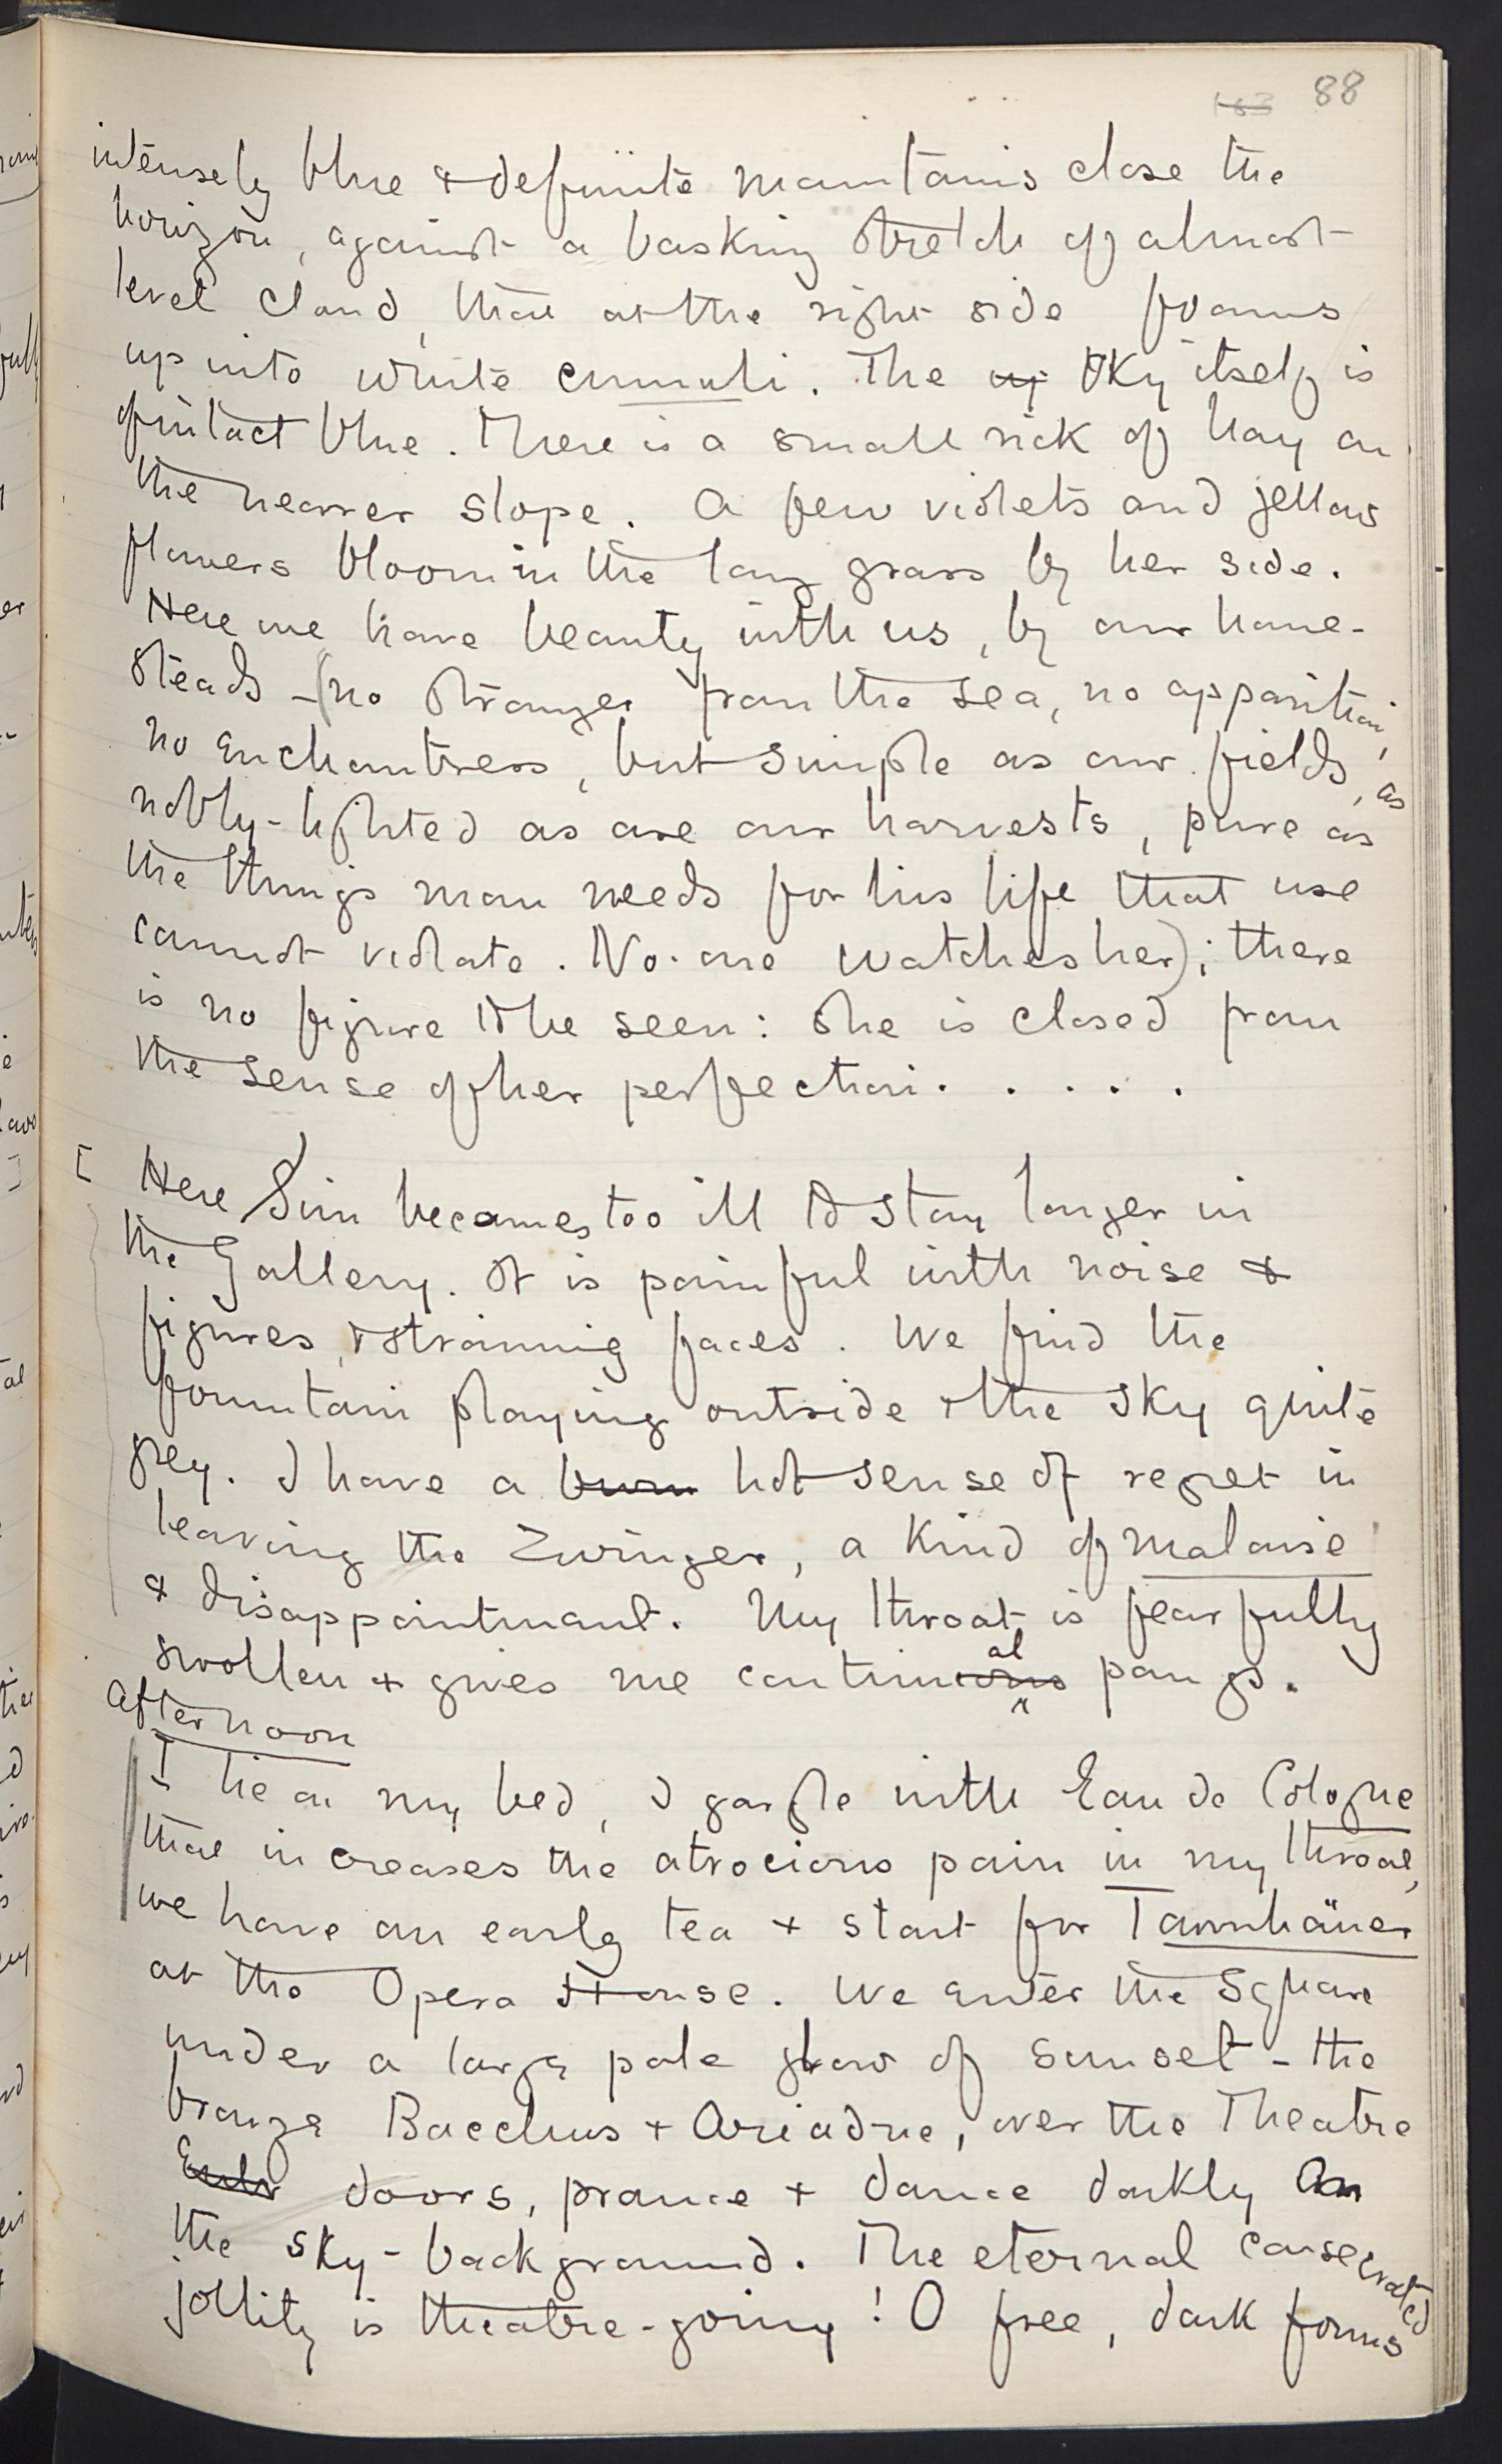 88
intensely blue & definite mountains close the
horizon, against a basking stretch of almost
level cloud, that at the right side foams
up into white cumuli. The sky itself is
of intact blue. There is a small rick of hay on
the nearer slope. A few violets and yellow
flowers bloom in the long grass by her side.
Here we have beauty with us, by our home-
steads – (no stranger from the sea, no apparition,
no enchantress, but simple as our fields, as
nobly-lighted as are our harvests, pure as
the things man needs for his life that use
cannot violate. No-one watches her); there
is no figure to be seen: she is closed from
the sense of her perfection. . . . .
[ Here Sim becomes too ill to stay longer in
the Gallery. It is painful with noise &
figures, & straining faces. We find the
fountain playing outside & the sky quite
grey. I have a burn hot sense of regret in
leaving the Zwinger, a kind of malaise
& disappointment. My throat is fearfully
swollen & gives me continual pangs.
Afternoon
I lie on my bed, I gargle with Eau de Cologne
that increases the atrocious pain in my throat,
we have an early tea & start for Tannhäuser
at the Opera House. We enter the Square
under a large pale glow of sunset – the
bronze Bacchus & Ariadne, over the Theatre
doors, prance & dance darkly on
the sky-background. The eternal consecrated
jollity is theatre-going! O free, dark forms